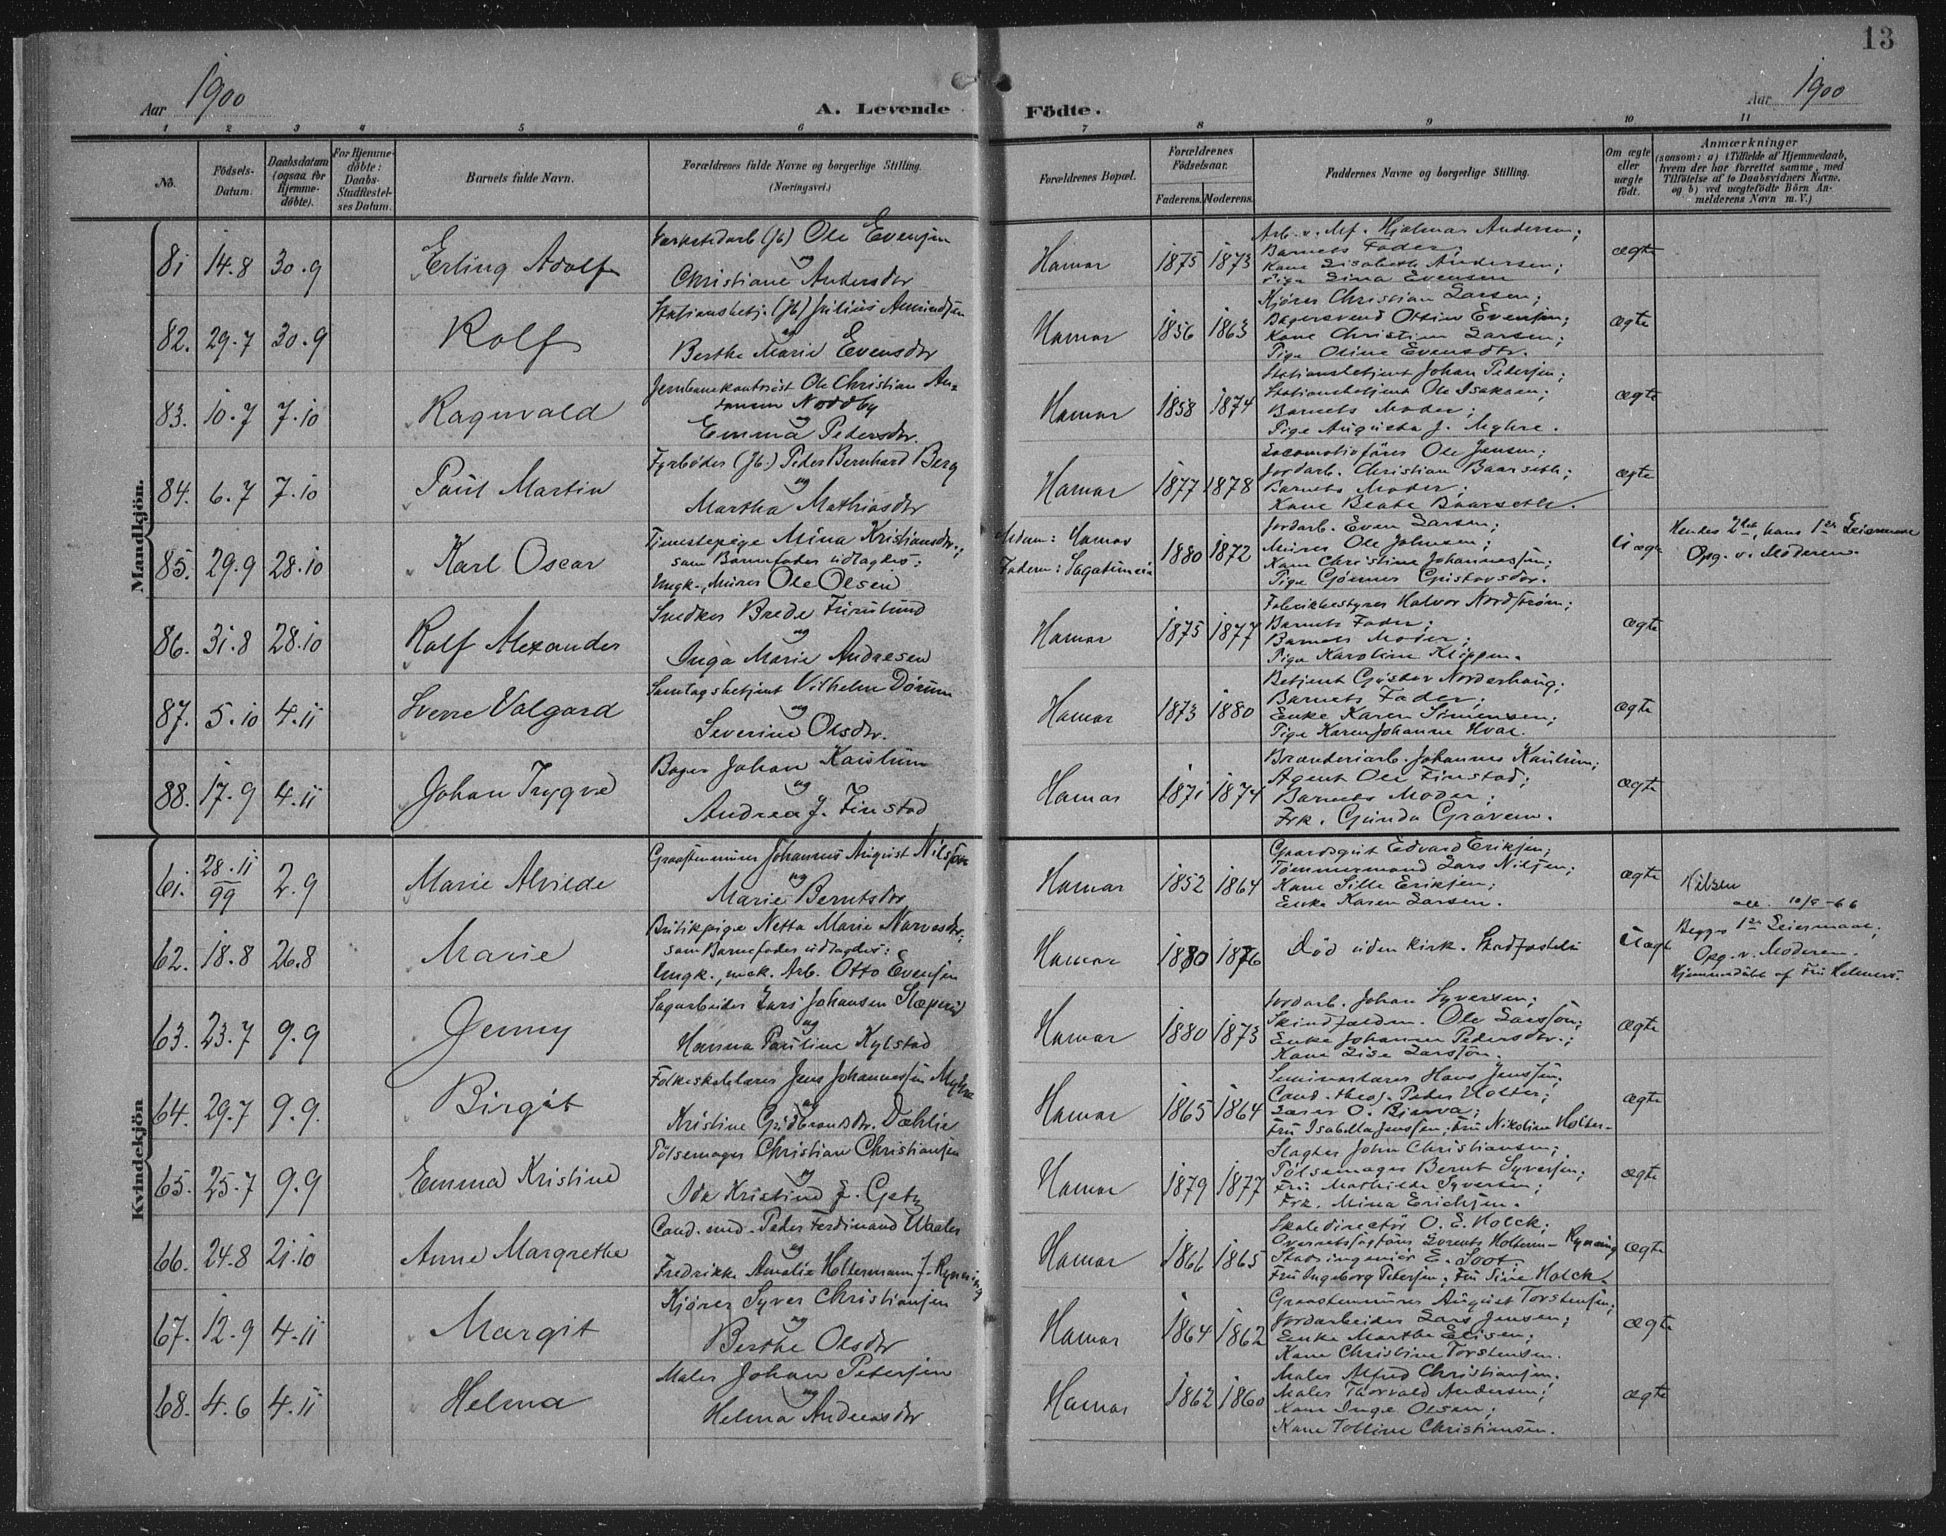 13
Aar 1900
A. Levende
Födte.
Aar 1900
1 2 3 4 5 6 7 8 9 10 11
No.
Födsels-Datum.
Daabsdatum (ogsaa for Hjemme-döbte).
For Hjemme-döbte: Daabs-Stadfæstel-ses Datum.
Barnets fulde Navn.
Forældrenes fulde Navne og borgerlige Stilling. (Næringsvei.)
Forældrenes Bopæl.
Forældrenes Födselsaar.
Faderens. Moderens.
Faddernes Navne og borgerlige Stilling.
Om ægte eller uægte födt.
Anmærkninger
(saasom: a) i Tilfælde af Hjemmedaab, hvem der har forrettet samme, med Tilföielse af to Daabsvidners Navne, og b) ved uægtefödte Börn An-melderens Navn m. V.)
Mandkjön.
81 14.8 30.9 Erling Adolf
Værkstedarb (Jb) Ole Evensen
og
Christiane Andersdtr
Hamar 1875 1873
Arb. v. Hjalmar Andersen;
Barnets Fader;
Kone Lisabeth Andersen;
Pige Lina Evensen
ægte
82. 29.7 30.9 Rolf
Stationsbetj. (Jb) Julius Amundsen
og
Berthe Marie Evensdtr
Hamar 1856 1863
Kjører Christian Larsen;
Bagersvend Ottin Evensen;
Kone Christine Larsen;
Pige Oline Evensdtr.
ægte
83. 10.7 7.10 Ragnvald
Jernbanekontorist Ole Christian An-
dersen Nordby
og
Emma Petersdtr.
Hamar 1858 1874
Stationsbetjent Johan Petersen;
Stationsbetjent Ole Isaksen;
Barnets Moder;
Pige Augusta J. Myhre.
ægte
84. 6.7 7.10 Paul Martin
Fyrbøder (Jb.) Peder Bernhard Berg
og
Martha Mathiasdtr
Hamar 1877 1878
Locomotivfører Ole Jensen;
Jordarb. Christian Baarseth;
Barnets Moder;
Kone Beate Baarseth.
ægte
85. 29.9 28.10 Karl Oscar
Tjenestepige Mina Kristiansdtr.;
som Barnefader udlagdes:
Ungk., Murer Ole Olsen
Modern: Hamar
Fadern:
1880 1872
Jordarb. Even Larsen;
Murer Ole Johnsen;
Kone Christine Johannessen;
Pige Gjørine Gustavsdtr.
Uægte
Hendes 2det, hans 1ste Leiermaal
Opg. v. Moderen.
86. 31.8 28.10 Rolf Alexander
Snedker Brede Furulund
og
Inga Marie Andresen
Hamar 1875 1877
Fabrikbestyrer Halvor Nordstrøm;
Barnets Fader;
Barnets Moder;
Pige Karoline Klippen.
ægte
87. 5.10 4.11 Sverre Valgard
Samlagsbetjent Vilhelm Dørum
og
Severine Olsdtr.
Hamar 1873 1880
Betjent Gustav Norderhaug;
Barnets Fader;
Enke Karen Simensen;
Pige Karen Johanne Hval.
ægte
88. 17.9 4.11 Johan Trygve
Bager Johan Kaulum
og
Andrea J. Finstad
Hamar 1871 1874
Brænderiarb. Johannes Kaulum;
Agent Ole Finstad;
Barnets Moder;
Frk. Gunda Graven.
ægte
Kvindekjön
61. 28.11/99 2.9 Marie Alvilde
Graastensmurer Johannes August Nilssen
og
Marie Berntsdtr
Hamar 1852 1864
Gaardsgut Edvard Eriksen;
Tømmermand Lars Nilsen;
Kone Sille Eriksen;
Enke Karen Larsen.
ægte
Nilsen
62. 18.8 26.8 Marie
Butikpige Netta Marie Narvesdtr;
som Barnefader udlagdes:
Ungk., mek. Arb. Otto Evensen
Hamar 1880 1876
Død uden kirk. Stadfæstelse
Uægte
Begges 1ste Leiermaal;
Opg. v. Moderen.
Hjemmedøbt af Fru
63. 23.7 9.9 Jenny
Sagarbeider Lars Johansen
og
Hanna Pauline Kylstad
Hamar 1880 1873
Jordarb. Johan Syversen;
Ole Larssøn;
Enke Johanne Pedersdtr.;
Kone Lise Larssøn.
ægte
64. 29.7 9.9. Birgit
Folkeskolelærer Jens Johannessen Myhre
og
Kristine Gudbrandsdtr. Dæhlie
Hamar 1865 1864
Seminarlærer Hans Jenssen;
Cand. theol. Peder Holter;
Lærer O. Bjerva;
Fru Isabella Jenssen; Fru Nikoline Holter.
ægte
65. 25.7 9.9 Emma Kristine
Pølsemager Christian Christiansen
og
Ida Kristine f. Getz
Hamar 1879 1877
Slagter John Christiansen;
Pølsemager Bernt Syversen;
Fru Mathilde Syversen;
Frk. Mina Erichsen.
ægte
66. 24.8 21.10 Anne Margrethe
Cand. med. Peder Ferdinand Waaler
og
Fredrikke Amalie Holtermann f. Rynning
Hamar 1866 1865
Skoledirectør O. E. Holck;
Overretssagfører Lorents Holterm- Rynning
Stadsingeniør E. Soot;
Fru Ingeborg Petersen; Fru Sine Holck.
ægte
67. 12.9 4.11 Margit
Kjører Syver Christiansen
og
Berthe Olsdtr
Hamar 1864 1862
Graastensmurer August Torstensen;
Jordarbeider Lars Jensen;
Enke Marthe Elisen;
Kone Christine Torstensen.
ægte
68. 4.6 4.11 Helma
Maler Johan Petersen
og
Helma Andreasdtr
Hamar 1862 1860
Maler Alfred Christiansen.
Maler Thorvald Andersen;
Kone Inge Olsen;
Kone Tolline Christiansen.
ægte